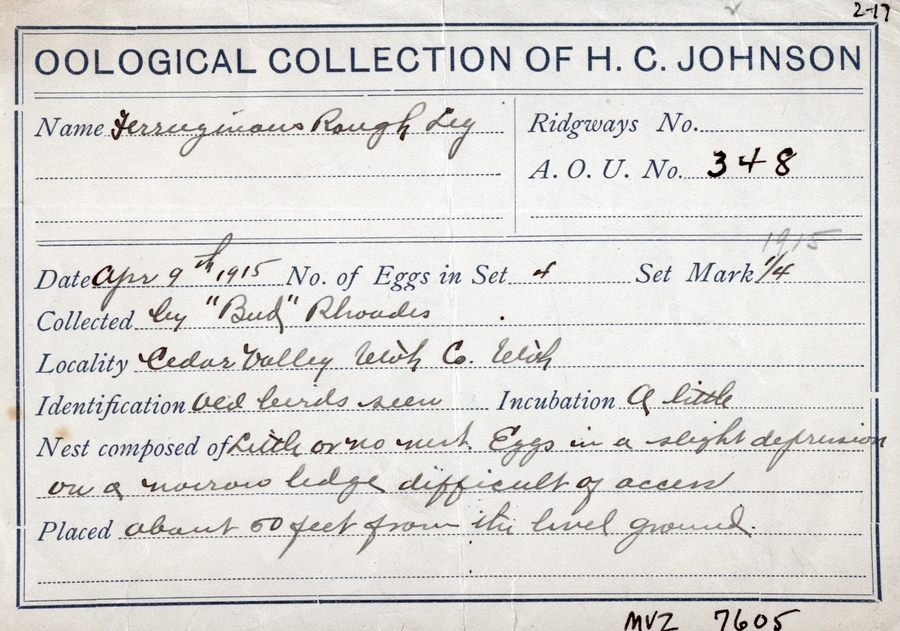 2-17
OOLOGICAL COLLECTION OF H. C. JOHNSON
Name Ferruginous Rough Leg
Ridgways No.
A. O. U. No. 348
1915
Date Apr 9th 1915 No. of Eggs in Set 4 Set Mark 1/4
Collected by "Bud" Rhoades
Locality Cedar Valley Utah Co. Utah
Identification Old birds seen Incubation A little
Nest composed of Little or no nest. Eggs in a slight depression
on a narrow ledge difficult of access
Placed about 50 feet from the level ground.
MVZ 7605